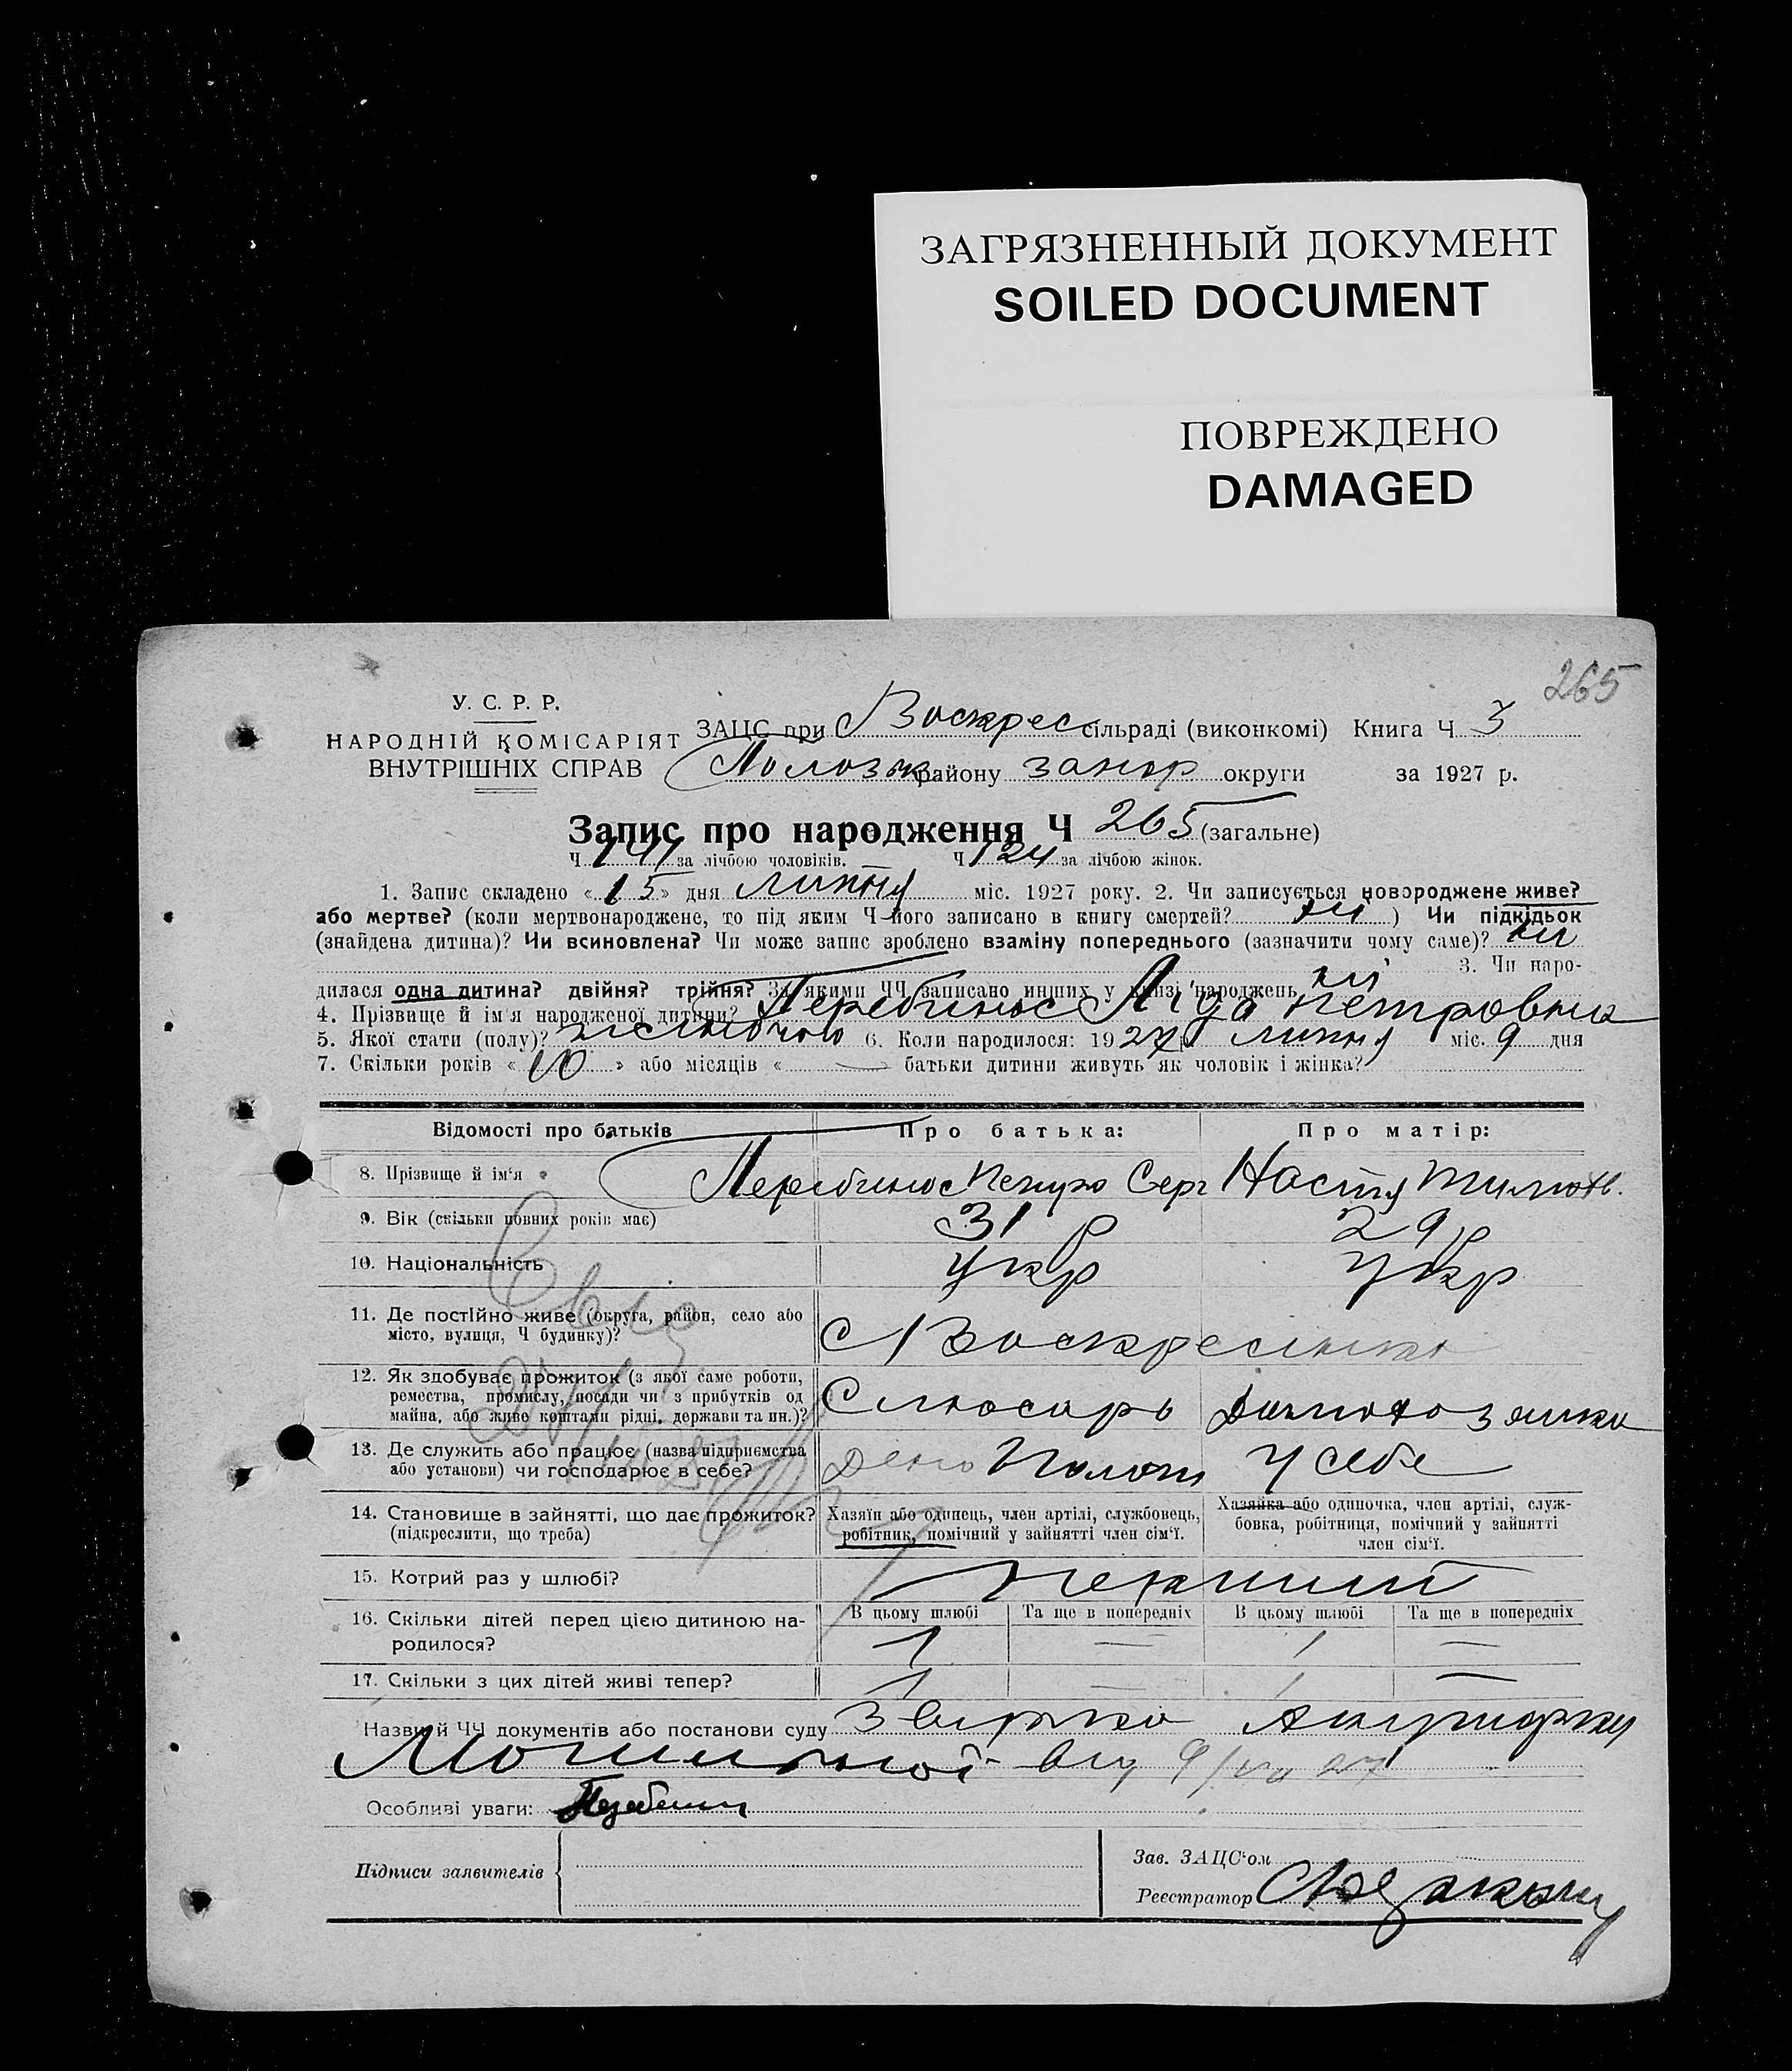 ЗАГРЯЗНЕННЫЙ ДОКУМЕНТ
SOILED DOCUMENT
ПОВРЕЖДЕНО
DAMAGED
265
У. С. Р. Р.
НАРОДНІЙ КОМІСАРІЯТ
ВНУТРІШНІХ СПРАВ
ЗАЦС при Воскрес сільраді (виконкомі) Книга Ч 3
Пологв району Запор округи за 1927 р.
Запис про народження Ч 265 (загальне)
Ч 141 за лічбою чоловіків. Ч 124 за лічбою жінок.
1. Запис складено «15» дня липня міс. 1927 року. 2. Чи записується новороджене живе?
або мертве? (коли мертвонароджене, то під яким Ч його записано в книгу смертей? ні) Чи підкідьок
(знайдена дитина)? Чи всиновлена? Чи може запис зроблено взаміну попереднього (зазначити чому саме)? ні
3. Чи наро-
дилася одна дитина? двійня? трійня? За якими ЧЧ записано инших у книзі народжень ні
4. Прізвище й ім'я народженої дитини? Перебийніс Ліда Петровна
5. Якої стати (полу)? жіночою 6. Коли народилося: 1927 р липня міс. 9 дня
7. Скільки років «10» або місяців « — » батьки дитини живуть як чоловік і жінка?
Відомості про батьків Про батька: Про матір:
8. Прізвище й ім'я Перебинос Петро Серг Настя Тимоф.
9. Вік (скільки повних років має) 31 р 29 р
10. Національність укр укр
11. Де постійно живе (округа, район, село або
місто, вулиця, Ч будинку)? С Воскресінка
12. Як здобуває прожиток (з якої саме роботи,
ремества, промислу, посади чи з прибутків од
майна, або живе коштами рідні, держави та ин.)? Слюсарь Домохозяйка
13. Де служить або працює (назва підприємства
або установи) чи господарює в себе? Депо Пологи У себе
14. Становище в зайнятті, що дає прожиток?
(підкреслити, що треба)
Хазяїн або одинець, член артілі, службовець,
робітник, помічний у зайнятті член сім'ї.
Хазяйка або одиночка, член артілі, служ-
бовка, робітниця, помічний у зайнятті
член сім'ї.
15. Котрий раз у шлюбі? перший
16. Скільки дітей перед цією дитиною на-
родилося?
В цьому шлюбі Та ще в попередніх В цьому шлюбі Та ще в попередніх
1 — 1 —
17. Скільки з цих дітей живі тепер? 1 — 1 —
Назви й ЧЧ документів або постанови суду Звірка Акушорки
Могильної від 9/VII 27
Особливі уваги:
Підписи заявителів
Зав. ЗАЦС'ом
Реєстратор